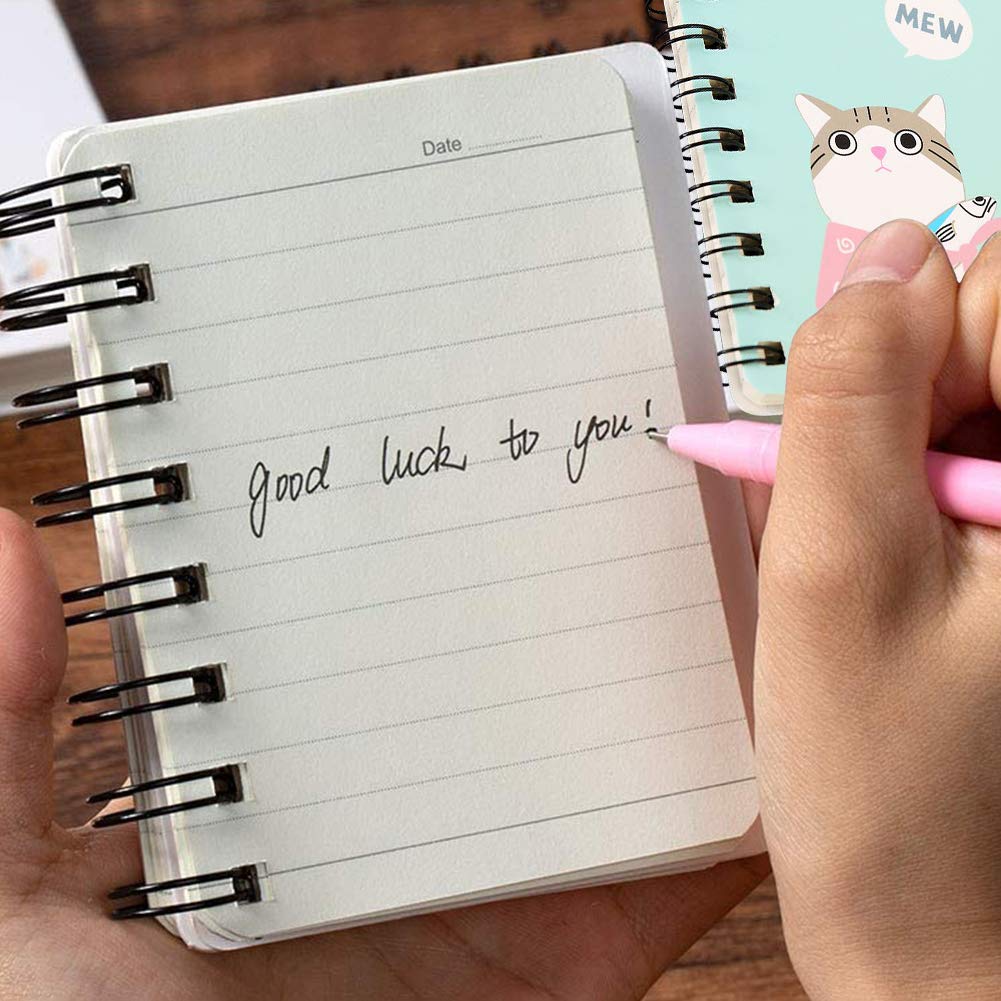 MEW
Date
good luck to you!